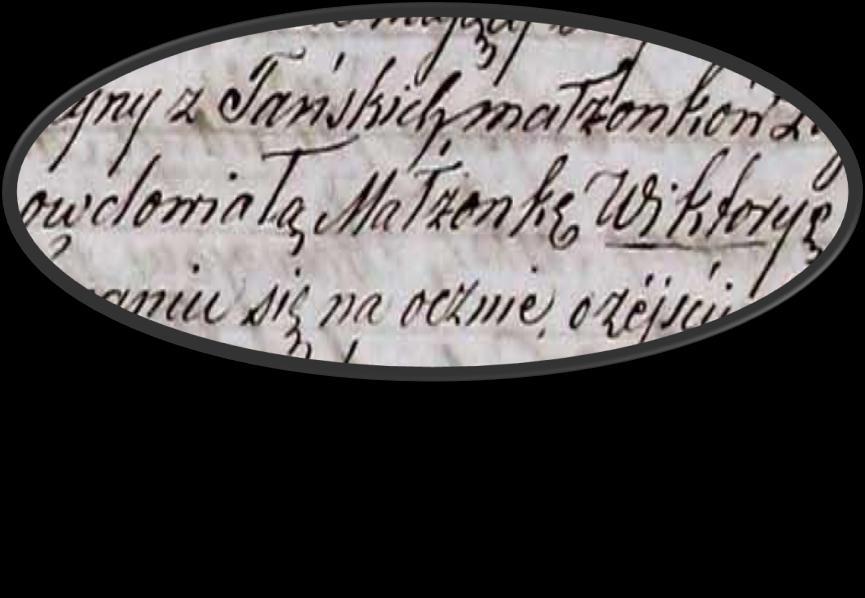 z Tańskich małżonków
owdowiałą Małżonkę Wiktoryę
się na ocznie, o zéjściu